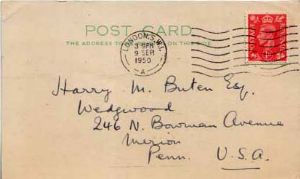 POST CARD
THE ADDRESS TO BE WRITTEN ON THIS SIDE
LONDON. S.W.1.
9 SEP
1950
A
Harry M. Buten Esq.
Wedgwood
246 N. Bowman Avenue
Merion
Penn. U.S.A.